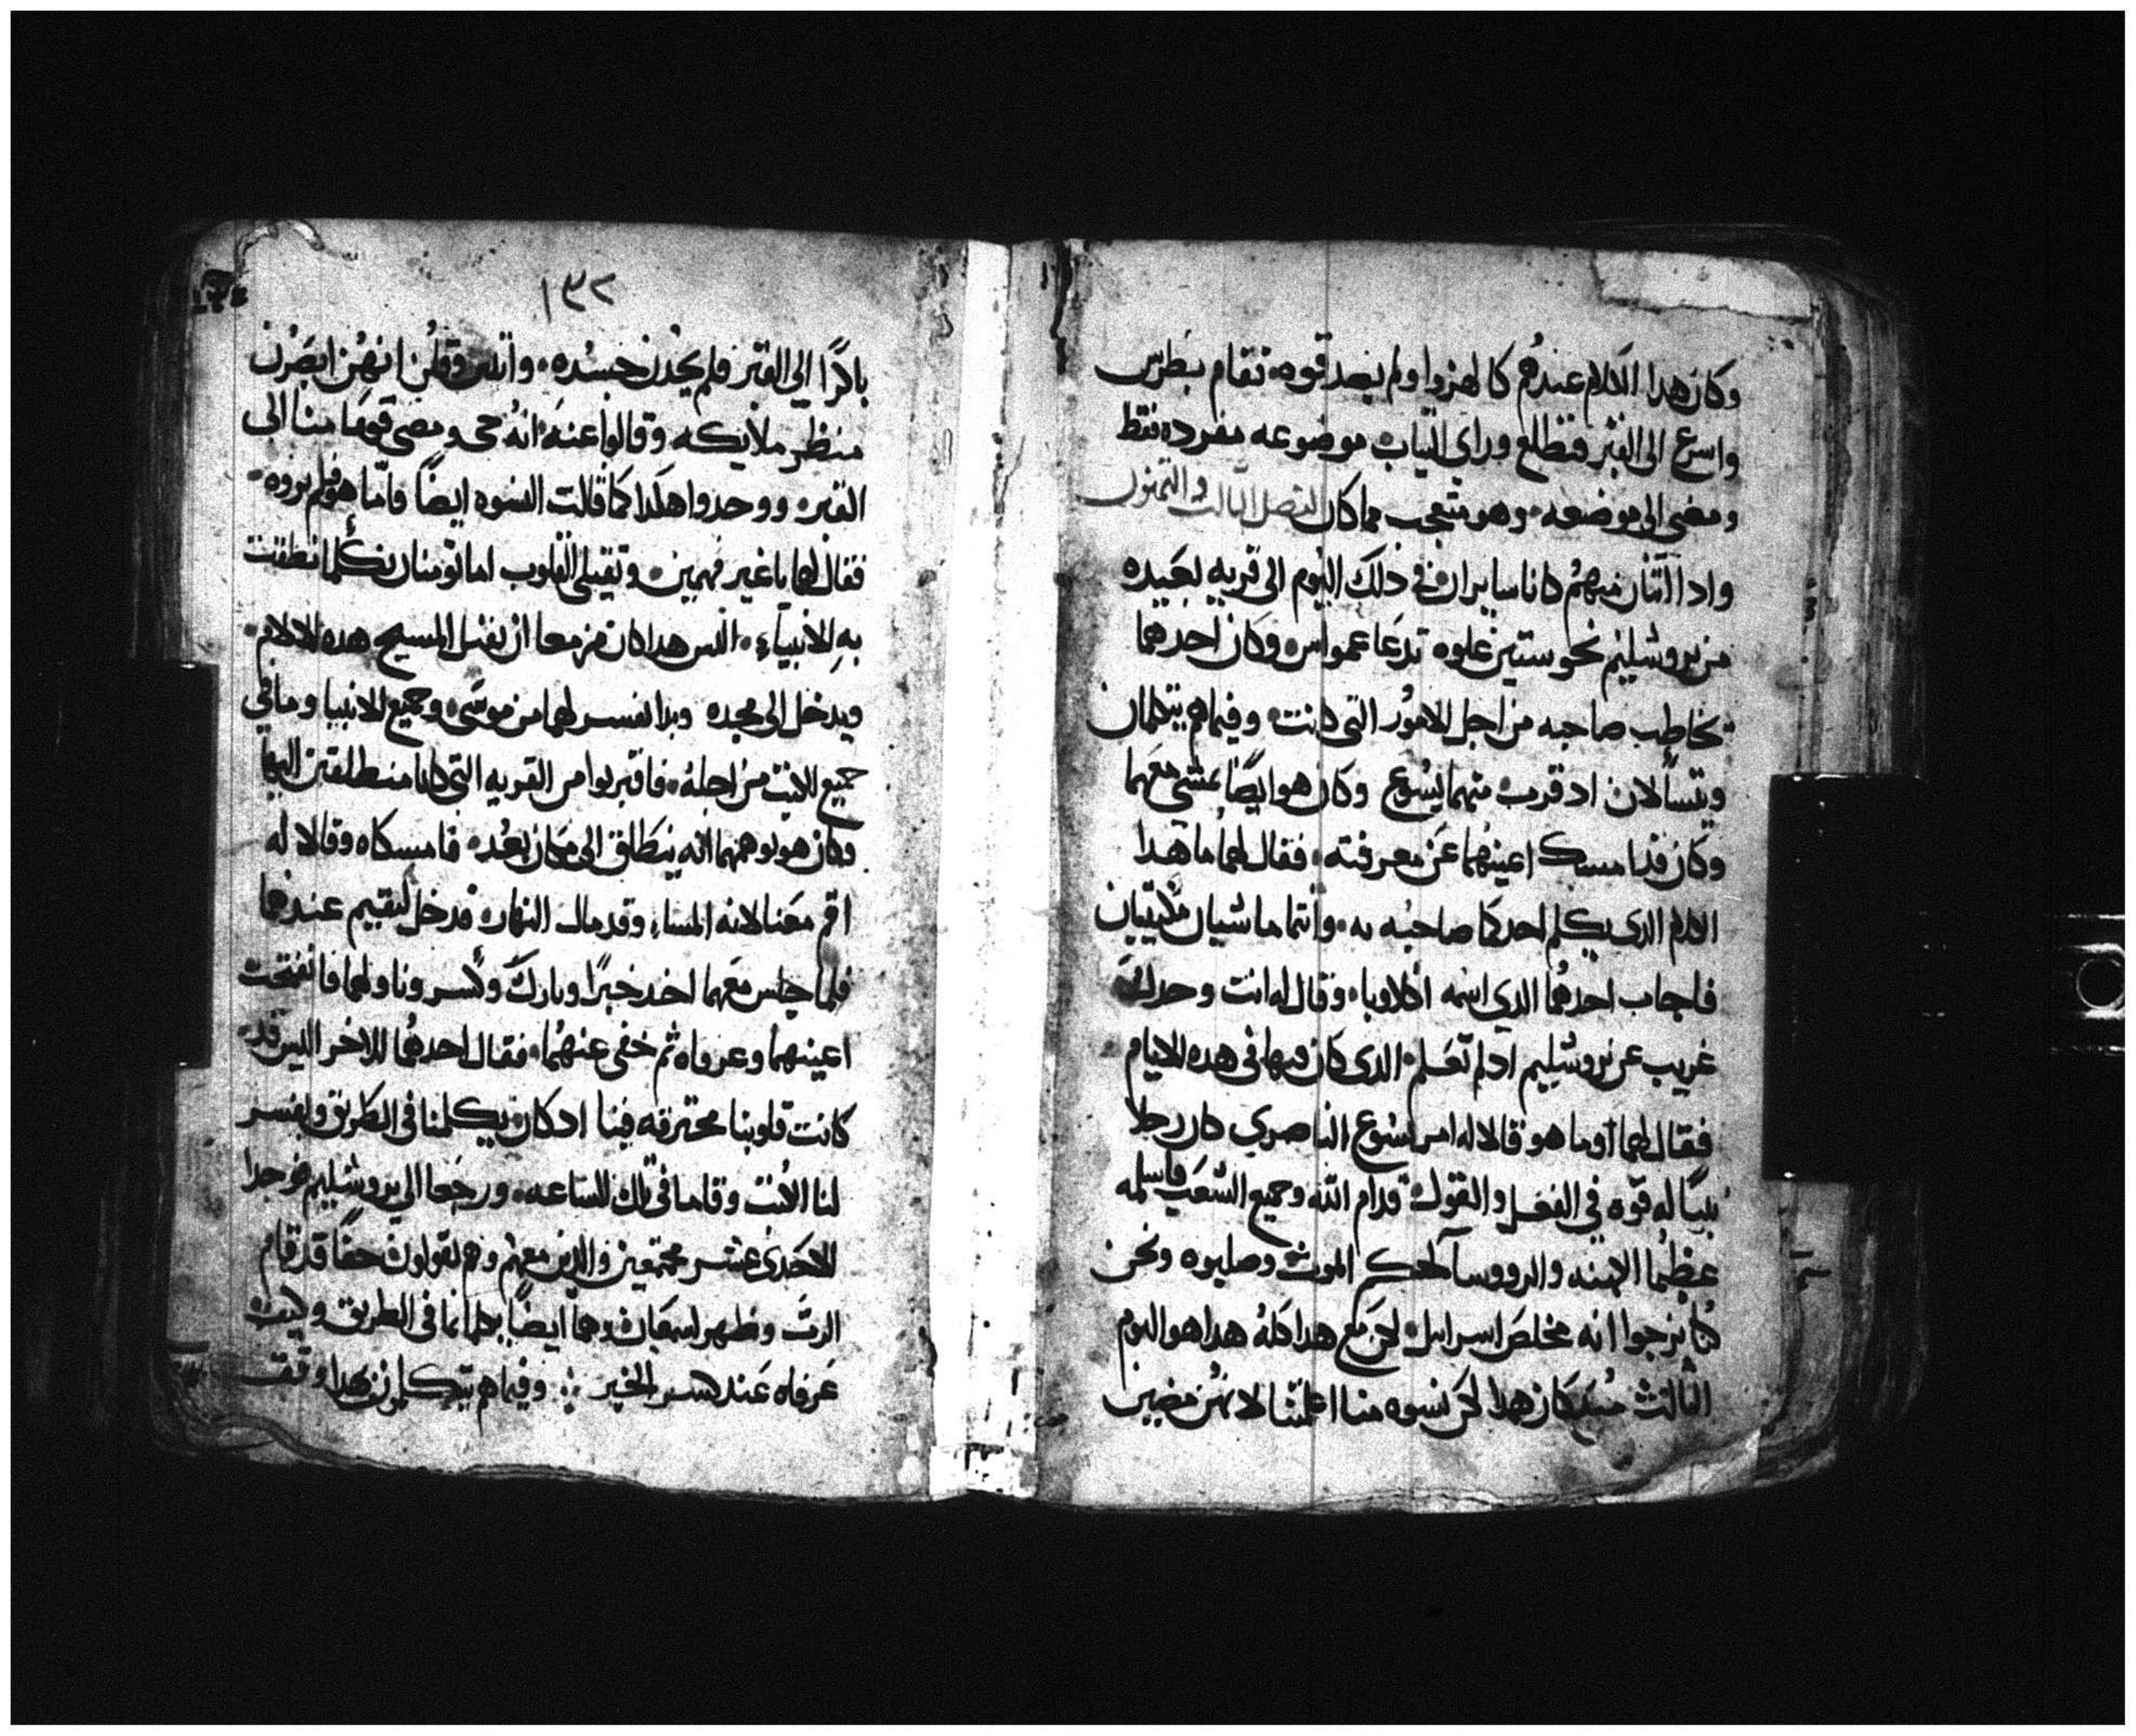 وكان هدا الكلام عندهم كالهزوا ولم يصدقوه فقام بطرس
واسرع الى القبر فتطلع وراى الثياب موضوعه مفرده فقط
ومضى الى موضعه وهو متعجب مما كان الفصل التالت والتمنون
وادا اتنان منهم كانا سايران في ذلك اليوم الى قريه بعيده
من يروشليم نحو ستين غلوه تدعا عمواس وكان احدهما
يخاطب صاحبه من اجل الامور التى كانت وفيما هم يتكلمان
ويتسألان اد قرب منهما يسوع وكان هو ايضًا يمشي معهما
وكان قد امسك اعينهما عن معرفته فقال لهما ما هدا
الكلام الدى يكلم احدكما صاحبه به وانتما ماشيان مكتيبان
فاجاب احدهما الدي اسمه اكلاوبا وقال له انت وحدك
غريب عن يروشليم اد لم تعلم الدى كان فيها فى هده الايام
فقال لهما وما هو قالا له امر يسوع الناصري كان رجلا
نبيًا له قوه في الفعل والقول قدام الله وجميع الشعب فاسلمه
عظما الكهنه والرووسا لحكم الموت وصلبوه ونحن
كنا نرجوا انه مخلص اسراييل لكن مع هدا كله هدا هو اليوم
الثالث مند كان هدا لكن نسوه منا اعلمننا لانهن مضين
١٣٢
باكرًا الي القبر فلم يجدن جسده واتين وقلن انهن ابصرن
منظر ملايكه وقالوا عنه انه حى ومضى قوما منا الى
القبر ووجدوا هكدا كما قالت النسوه ايضًا فاما هو فلم يروه
فقال لهما يا غير فهمين وتقيلى القلوب اما تومنان بكلما نطقت
به الانبياء اليس هدا كان مزمعا ان يقبل المسيح هده الالام
ويدخل الى مجده وبدا يفسر لهما من موسى وجميع الانبيا وما في
جميع الكتب من اجله فاقتربوا من القريه التى كانا منطلقين اليها
وكان هو يوهمهما انه ينطلق الى مكان بعد فامسكاه وقالا له
اقم معنا لانه المساء وقد مال النهار فدخل ليقيم عندهما
فلما جلس معهما اخد خبزًا وبارك وكسر وناولهما فانفتحت
اعينهما وعرفاه ثم خفى عنهما فقال احدهما للاخر اليس قد
كانت قلوبنا محترقه فينا ادكان يكلمنا فى الطريق ويفسر
لنا الكتب وقاما فى تلك الساعه ورجعا الي يروشليم فوجدا
الاحدى عشر مجتمعين والدين معهم وهم يقولون حقًا قد قام
الرب وظهر لسمعان وهما ايضًا فى الطريق وكيف
عرفاه عند كسر الخبز وفيما هم يتكلمون بهدا وقف